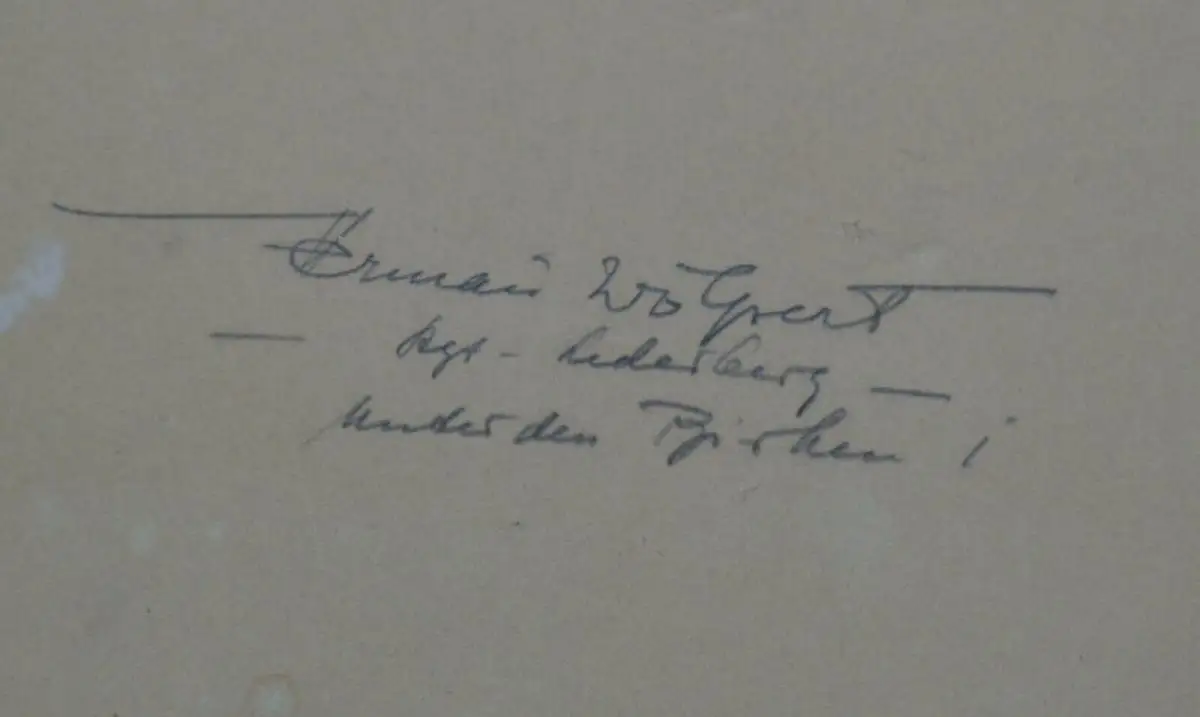 Herman̄ Wölpert
— Stgt - Lederberg —
Unter den Birken 1